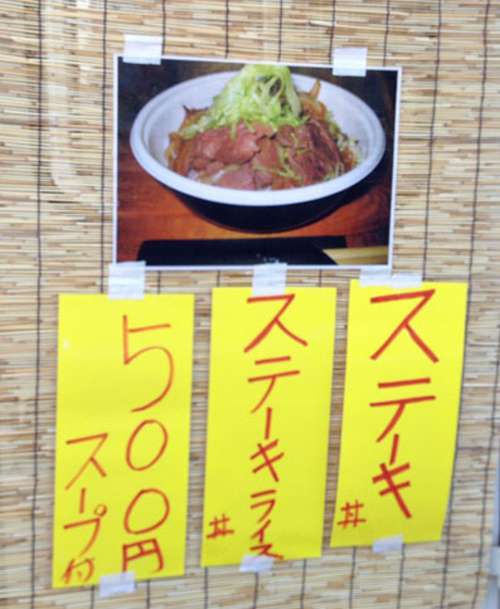 ステーキ
#
ステーキライス
#
500円
スープ付